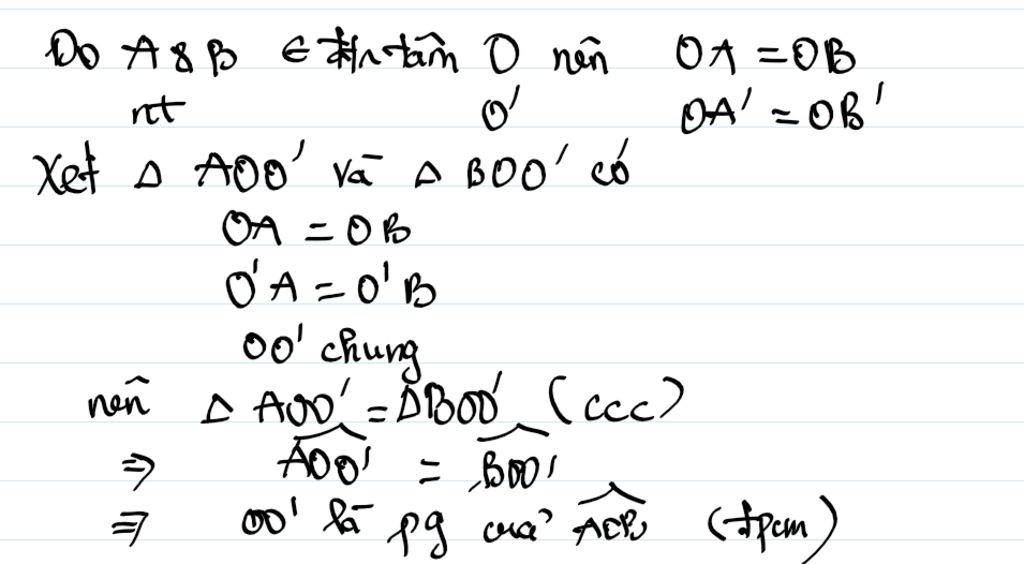 Do A & B ∈ đtr tâm O nên OA = OB
nt O' OA' = OB'
Xét Δ AOO' và Δ BOO' có
OA = OB
O'A = O'B
OO' chung
nên Δ AOO' = ΔBOO' (ccc)
⇒ AOO' = BOO'
⇒ OO' là pg của AOB (đpcm)